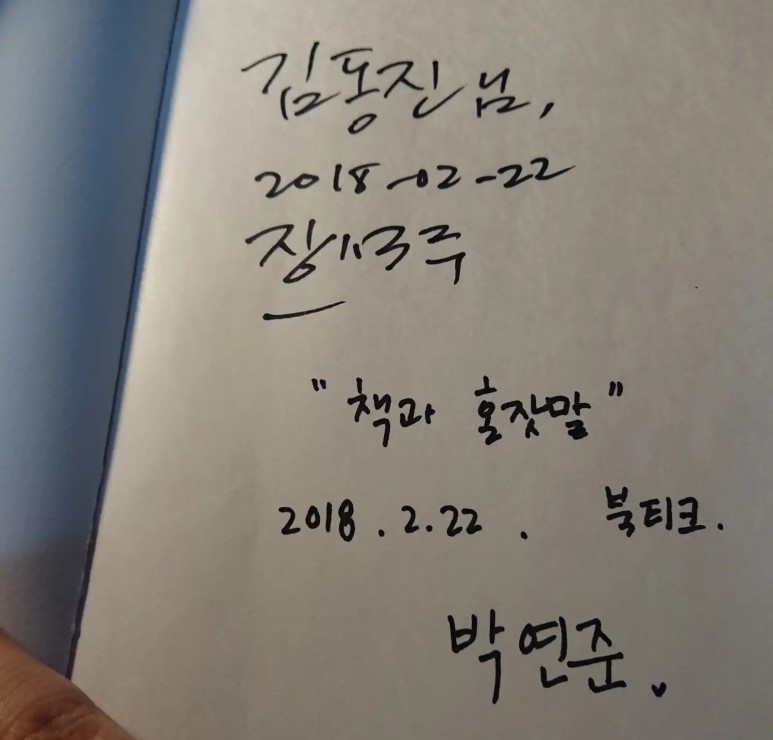 김동진 님,
2018-02-22
장석주
"책과 혼잣말"
2018. 2. 22. 북티크.
박연준.